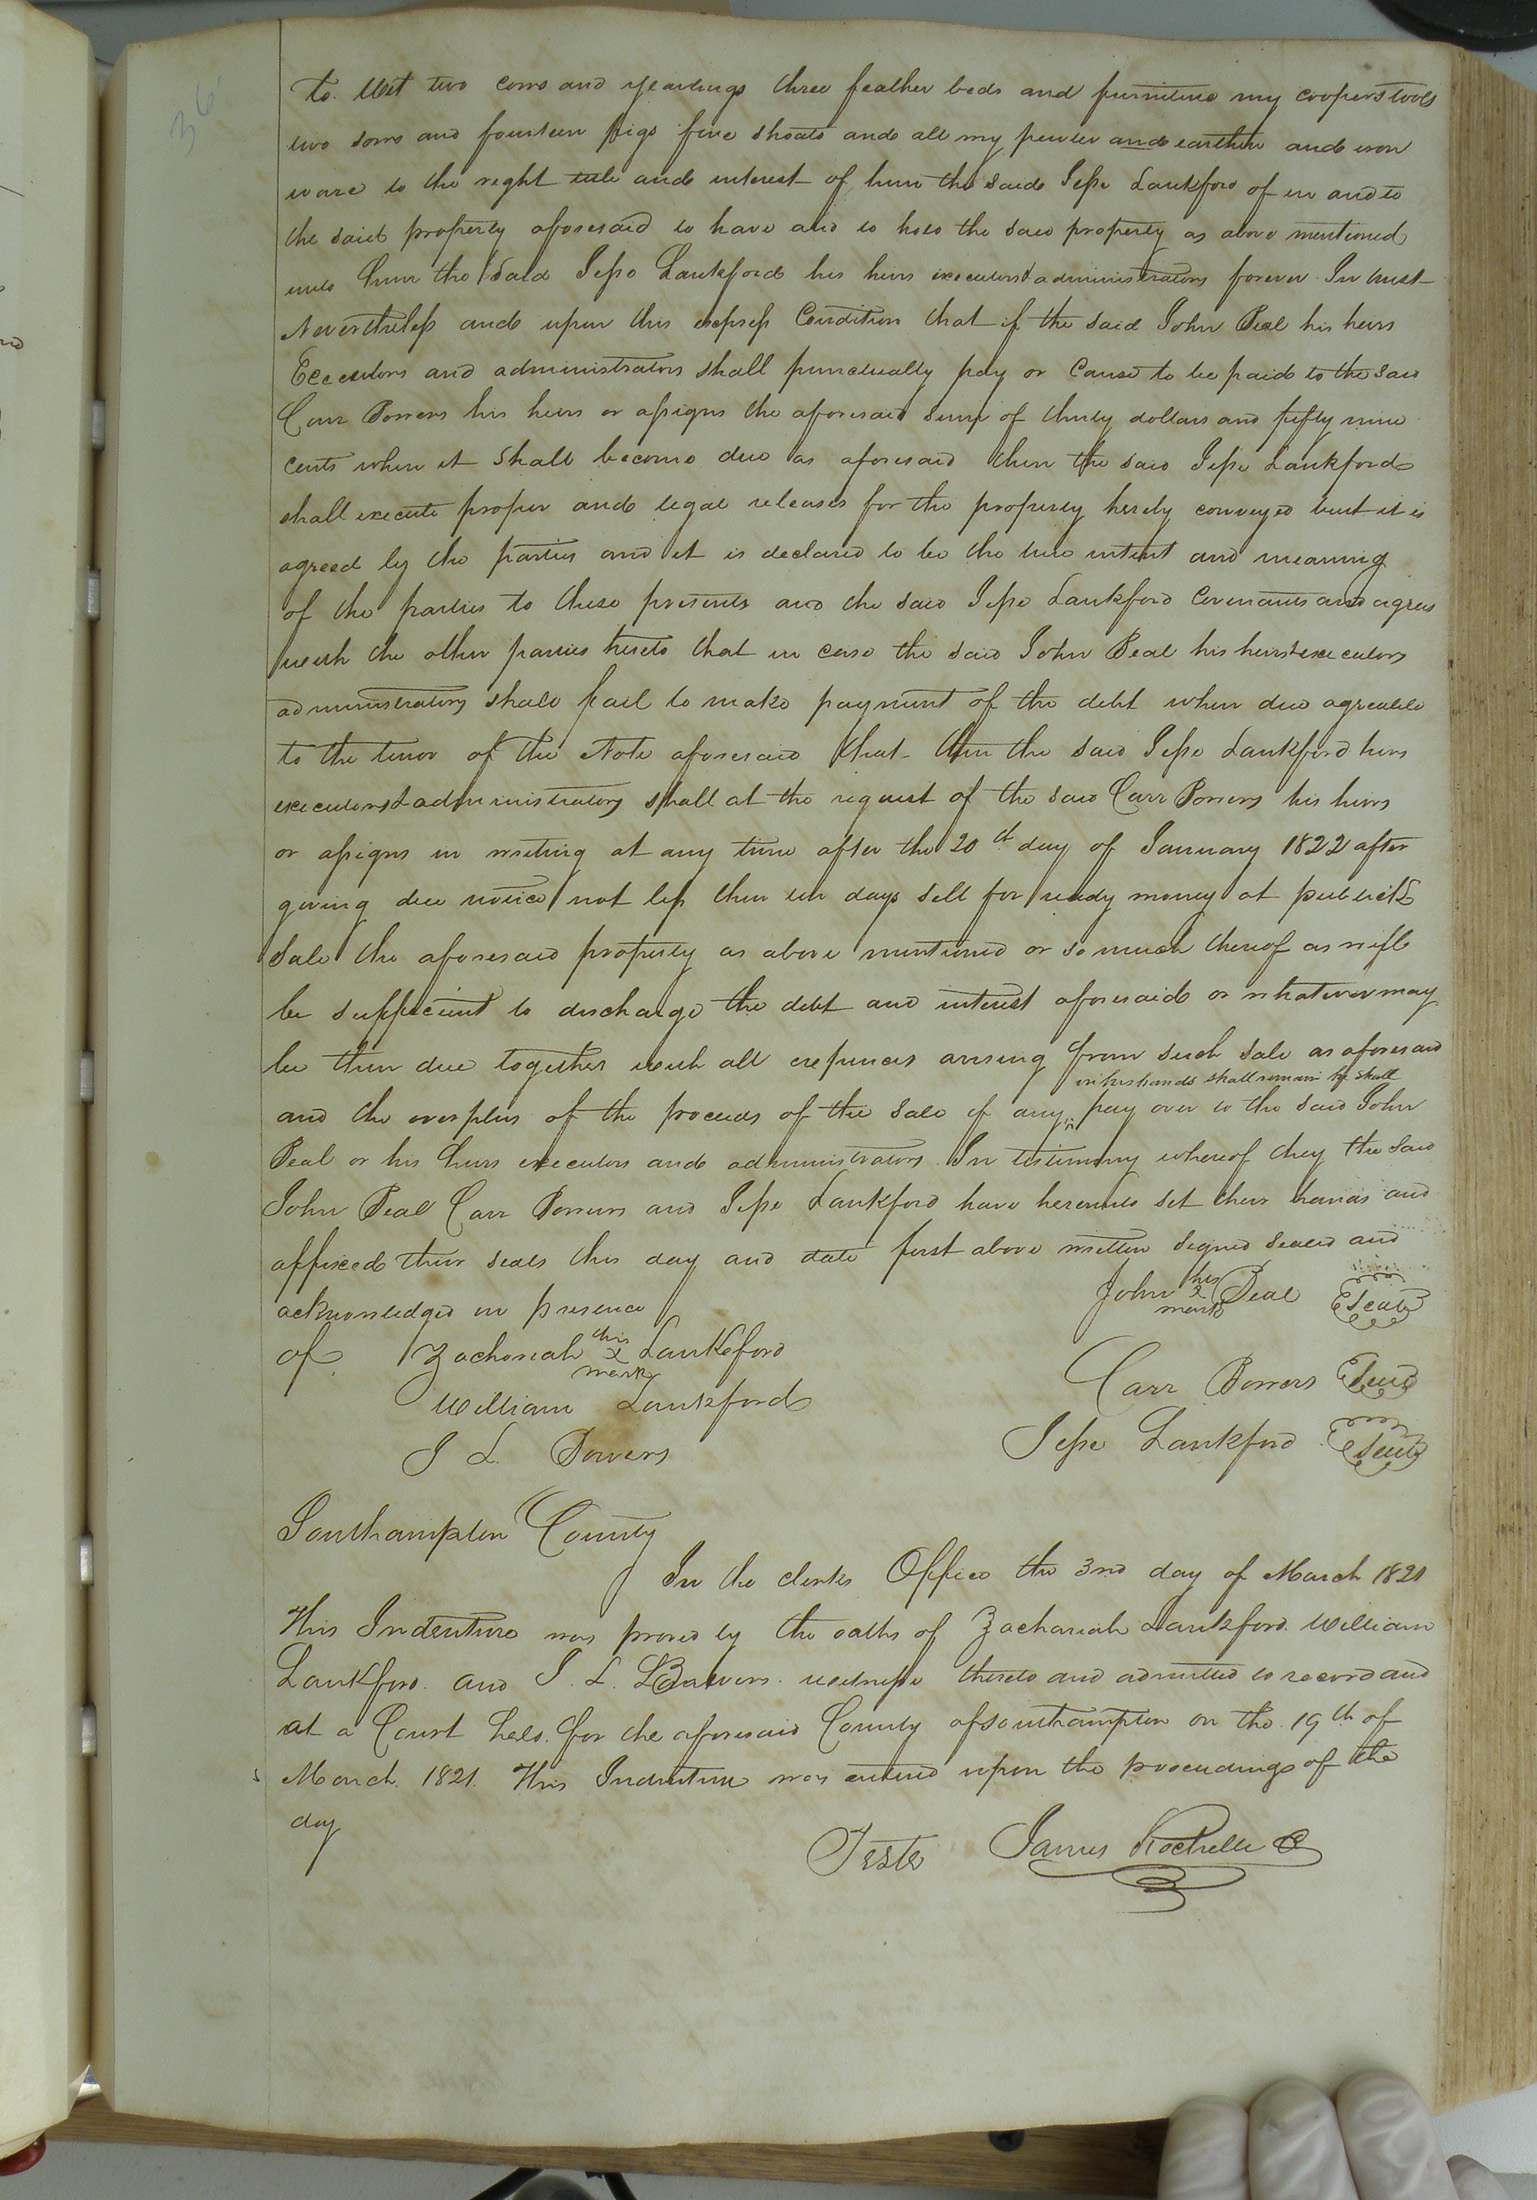 36
to Wit two cows and yearlings three feather beds and furniture my coopers tools
two sows and fourteen pigs five shoats and all my pewter and earthen and iron
ware to the right title and interest of him the said Jesse Lankford of in and to
the said property aforesaid to have and to hold the said property as above mentioned
unto him the said Jesse Lankford his heirs executors & administrators forever In trust
Nevertheless and upon this express Condition that if the said John Beal his heirs
Executors and administrators shall punctually pay or Cause to be paid to the said
Carr Bowers his heirs or assigns the aforesaid sum of thirty dollars and fifty nine
cents when it Shall become due as aforesaid then the said Jesse Lankford
shall execute proper and legal releases for the property hereby conveyed but it is
agreed by the parties and it is declared to be the true intent and meaning
of the parties to these presents and the said Jesse Lankford Covenants and agrees
with the other parties hereto that in case the said John Beal his heirs & executors
administrators shall fail to make payment of the debt when due agreeable
to the tenor of the Note aforesaid that then the said Jesse Lankford heirs
executors & administrators shall at the request of the said Carr Bowers his heirs
or assigns in writing at any time after the 20th day of January 1822 after
giving due notice not less then ten days sell for ready money at publick
Sale the aforesaid property as above mentioned or so much thereof as will
be sufficient to discharge the debt and interest aforesaid or whatever may
be then due together with all expences arising from such sale as aforesaid
in his hands shall remain he shall
and the overplus of the proceeds of the sale if any pay over to the said John
Beal or his heirs executors and administrators. In testimony whereof they the said
John Beal Carr Bowers and Jesse Lankford have hereunto set their hands and
affixed their seals this day and date first above written signed sealed and
acknowledged in presence
John his x mark Beal Seal
of Zachariah his x mark Lankford
Carr Bowers Seal
William Lankford
Jesse Lankford Seal
J L. Bowers
Southampton County
In the clerks Office the 3rd day of March 1821
This Indenture was proved by the oaths of Zachariah Lankford. William
Lankford. and J. L. Bowers. witnesse thereto and admitted to record and
at a Court held. for the aforesaid County of southampton on the 19th of
March. 1821. This Indenture was entered upon the proceedings of the
day
Teste James Rochelle C